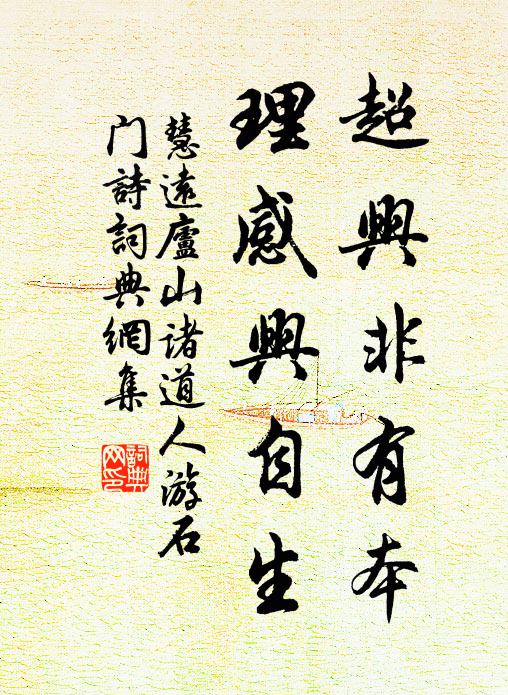 超興非有本
理感興自生
慧遠廬山诸道人游石
门詩詞典網集
詞典
网印